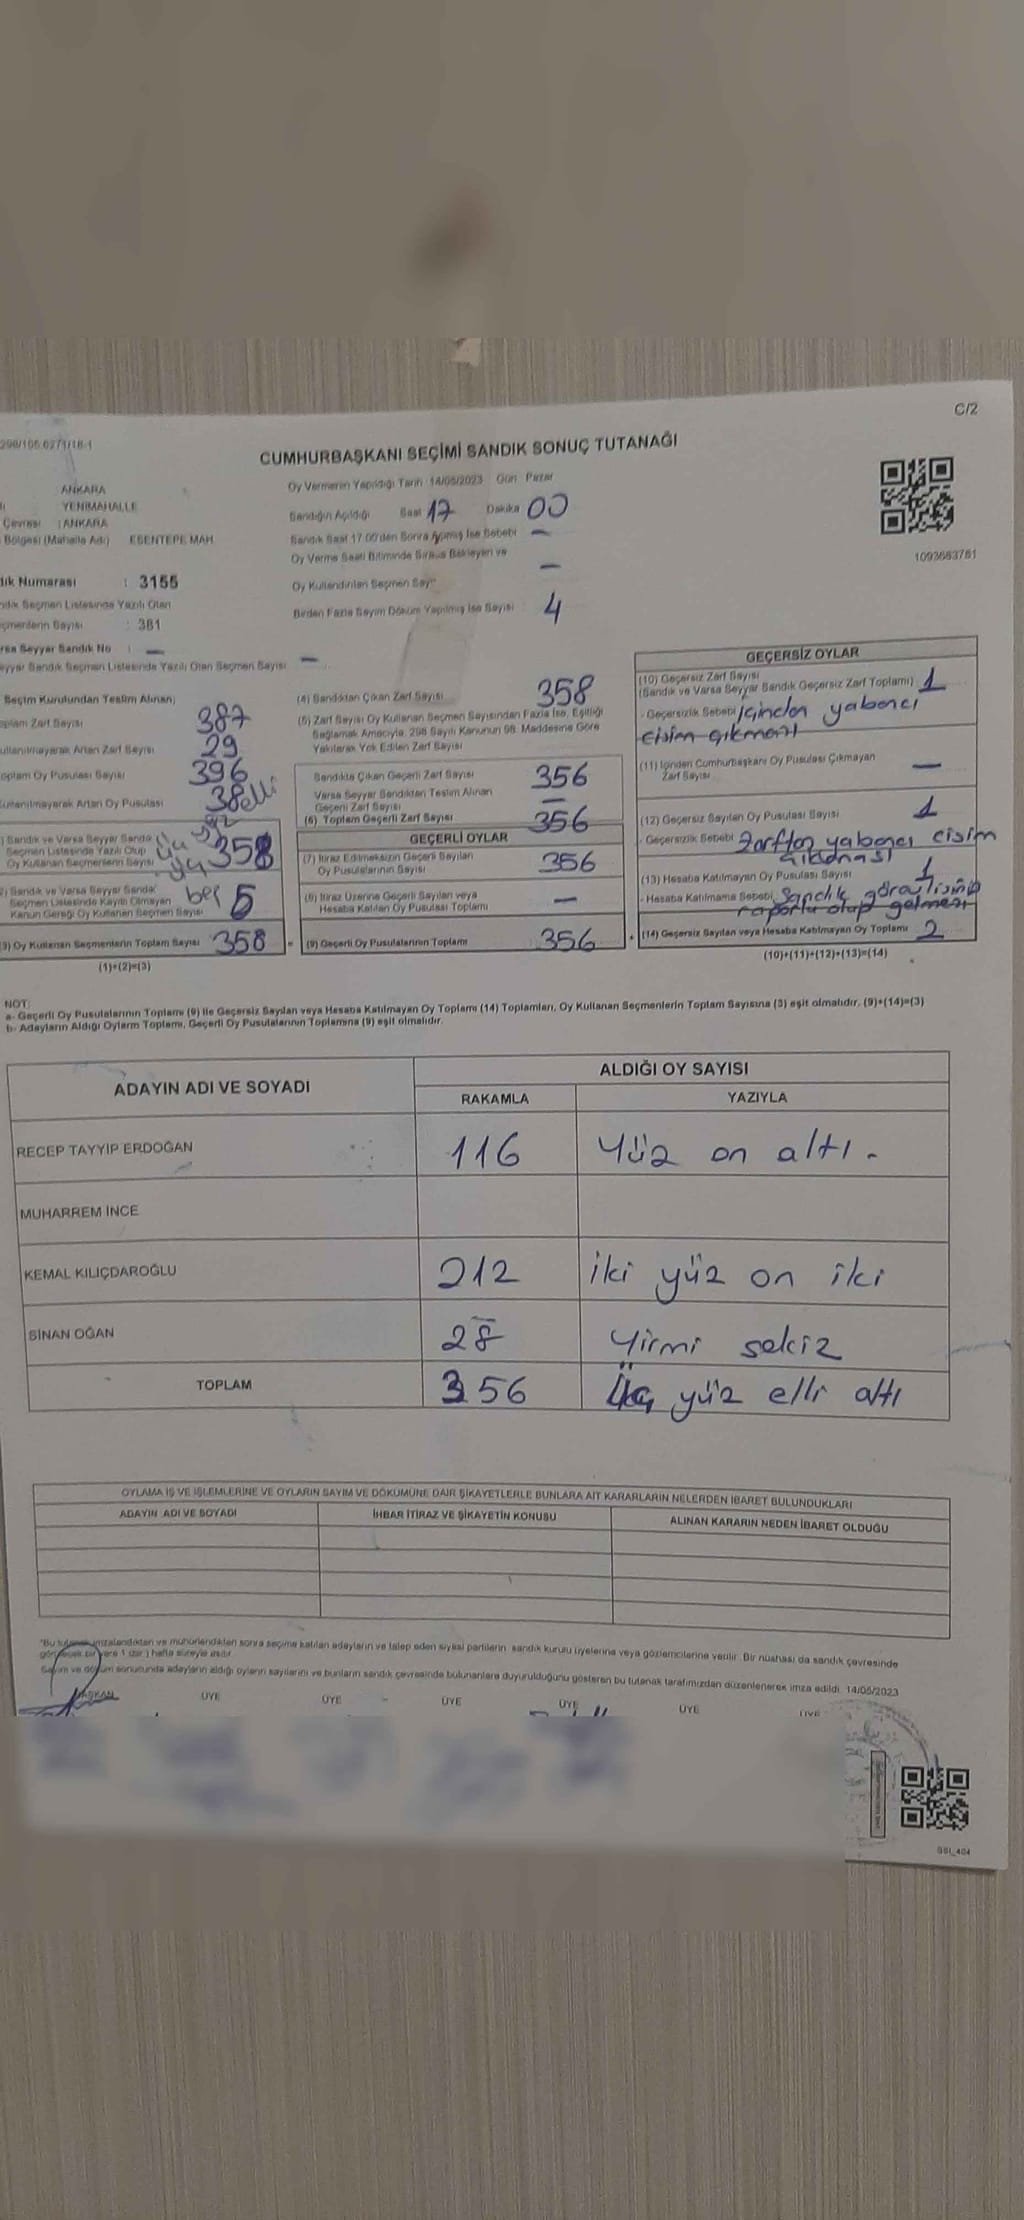 C/2
CUMHURBAŞKANI SEÇİMİ SANDIK SONUÇ TUTANAĞI
ANKARA
YENİMAHALLE
Çevresi : ANKARA
Bölgesi (Mahalle Adı) ESENTEPE MAH
Numarası : 3155
Seçmen Listesinde Yazılı Olan
Sayısı : 381
Seyyar Sandık No : —
Sandık Seçmen Listesinde Yazılı Olan Seçmen Sayısı —
Oy Vermenin Yapıldığı Tarih 14/05/2023 Gün Pazar
Sandığın Açıldığı Saat 17 Dakika 00
Sandık Saat 17.00'den Sonra Açılmış İse Sebebi —
Oy Verme Saati Bitiminde Sırada Bekleyen ve
Oy Kullandırılan Seçmen Sayısı —
Birden Fazla Sayım Döküm Yapılmış İse Sayısı 4
1093683761
Seçim Kurulundan Teslim Alınan)
Zarf Sayısı 387
Kullanılmayarak Artan Zarf Sayısı 29
Toplam Oy Pusulası Sayısı 396
Kullanılmayarak Artan Oy Pusulası 38
Sandık ve Varsa Seyyar Sandık
Seçmen Listesinde Yazılı Olup
Oy Kullanan Seçmenlerin Sayısı 358
Sandık ve Varsa Seyyar Sandık
Seçmen Listesinde Kayıtlı Olmayan
Kanun Gereği Oy Kullanan Seçmen Sayısı beş 5
(3) Oy Kullanan Seçmenlerin Toplam Sayısı 358
(1)+(2)=(3)
(4) Sandıktan Çıkan Zarf Sayısı 358
(5) Zarf Sayısı Oy Kullanan Seçmen Sayısından Fazla İse, Eşitliği
Sağlamak Amacıyla, 298 Sayılı Kanunun 98. Maddesine Göre
Yakılarak Yok Edilen Zarf Sayısı
Sandıkta Çıkan Geçerli Zarf Sayısı 356
Varsa Seyyar Sandıktan Teslim Alınan
Geçerli Zarf Sayısı —
(6) Toplam Geçerli Zarf Sayısı 356
GEÇERLİ OYLAR
(7) İtiraz Edilmeksizin Geçerli Sayılan
Oy Pusulalarının Sayısı 356
(8) İtiraz Üzerine Geçerli Sayılan veya
Hesaba Katılan Oy Pusulası Toplamı —
= (9) Geçerli Oy Pusulalarının Toplamı 356
GEÇERSİZ OYLAR
(10) Geçersiz Zarf Sayısı
(Sandık ve Varsa Seyyar Sandık Geçersiz Zarf Toplamı) 1
- Geçersizlik Sebebi içinden yabancı
cisim çıkması
(11) İçinden Cumhurbaşkanı Oy Pusulası Çıkmayan
Zarf Sayısı —
(12) Geçersiz Sayılan Oy Pusulası Sayısı 1
- Geçersizlik Sebebi Zarftan yabancı cisim
çıkması
(13) Hesaba Katılmayan Oy Pusulası Sayısı 1
- Hesaba Katılmama Sebebi Sandık görevlisinin
raporlu olup gelmesi
+ (14) Geçersiz Sayılan veya Hesaba Katılmayan Oy Toplamı 2
(10)+(11)+(12)+(13)=(14)
NOT:
a- Geçerli Oy Pusulalarının Toplamı (9) ile Geçersiz Sayılan veya Hesaba Katılmayan Oy Toplamı (14) Toplamları, Oy Kullanan Seçmenlerin Toplam Sayısına (3) eşit olmalıdır. (9)+(14)=(3)
b- Adayların Aldığı Oyların Toplamı, Geçerli Oy Pusulalarının Toplamına (9) eşit olmalıdır.
ADAYIN ADI VE SOYADI
ALDIĞI OY SAYISI
RAKAMLA YAZIYLA
RECEP TAYYİP ERDOĞAN 116 Yüz on altı.
MUHARREM İNCE
KEMAL KILIÇDAROĞLU 212 iki yüz on iki
SİNAN OĞAN 28 Yirmi sekiz
TOPLAM 356 Üç yüz elli altı
OYLAMA İŞ VE İŞLEMLERİNE VE OYLARIN SAYIM VE DÖKÜMÜNE DAİR ŞİKAYETLERLE BUNLARA AİT KARARLARIN NELERDEN İBARET BULUNDUKLARI
ADAYIN ADI VE SOYADI İHBAR İTİRAZ VE ŞİKAYETİN KONUSU ALINAN KARARIN NEDEN İBARET OLDUĞU
*Bu tutanak imzalandıktan ve mühürlendikten sonra seçime katılan adayların ve talep eden siyasi partilerin sandık kurulu üyelerine veya gözlemcilerine verilir. Bir nüshası da sandık çevresinde
görülecek bir yere 1 (bir) hafta süreyle asılır.
Sayım ve döküm sonucunda adayların aldığı oyların sayılarını ve bunların sandık çevresinde bulunanlara duyurulduğunu gösteren bu tutanak tarafımızdan düzenlenerek imza edildi. 14/05/2023
BAŞKAN ÜYE ÜYE ÜYE ÜYE ÜYE ÜYE